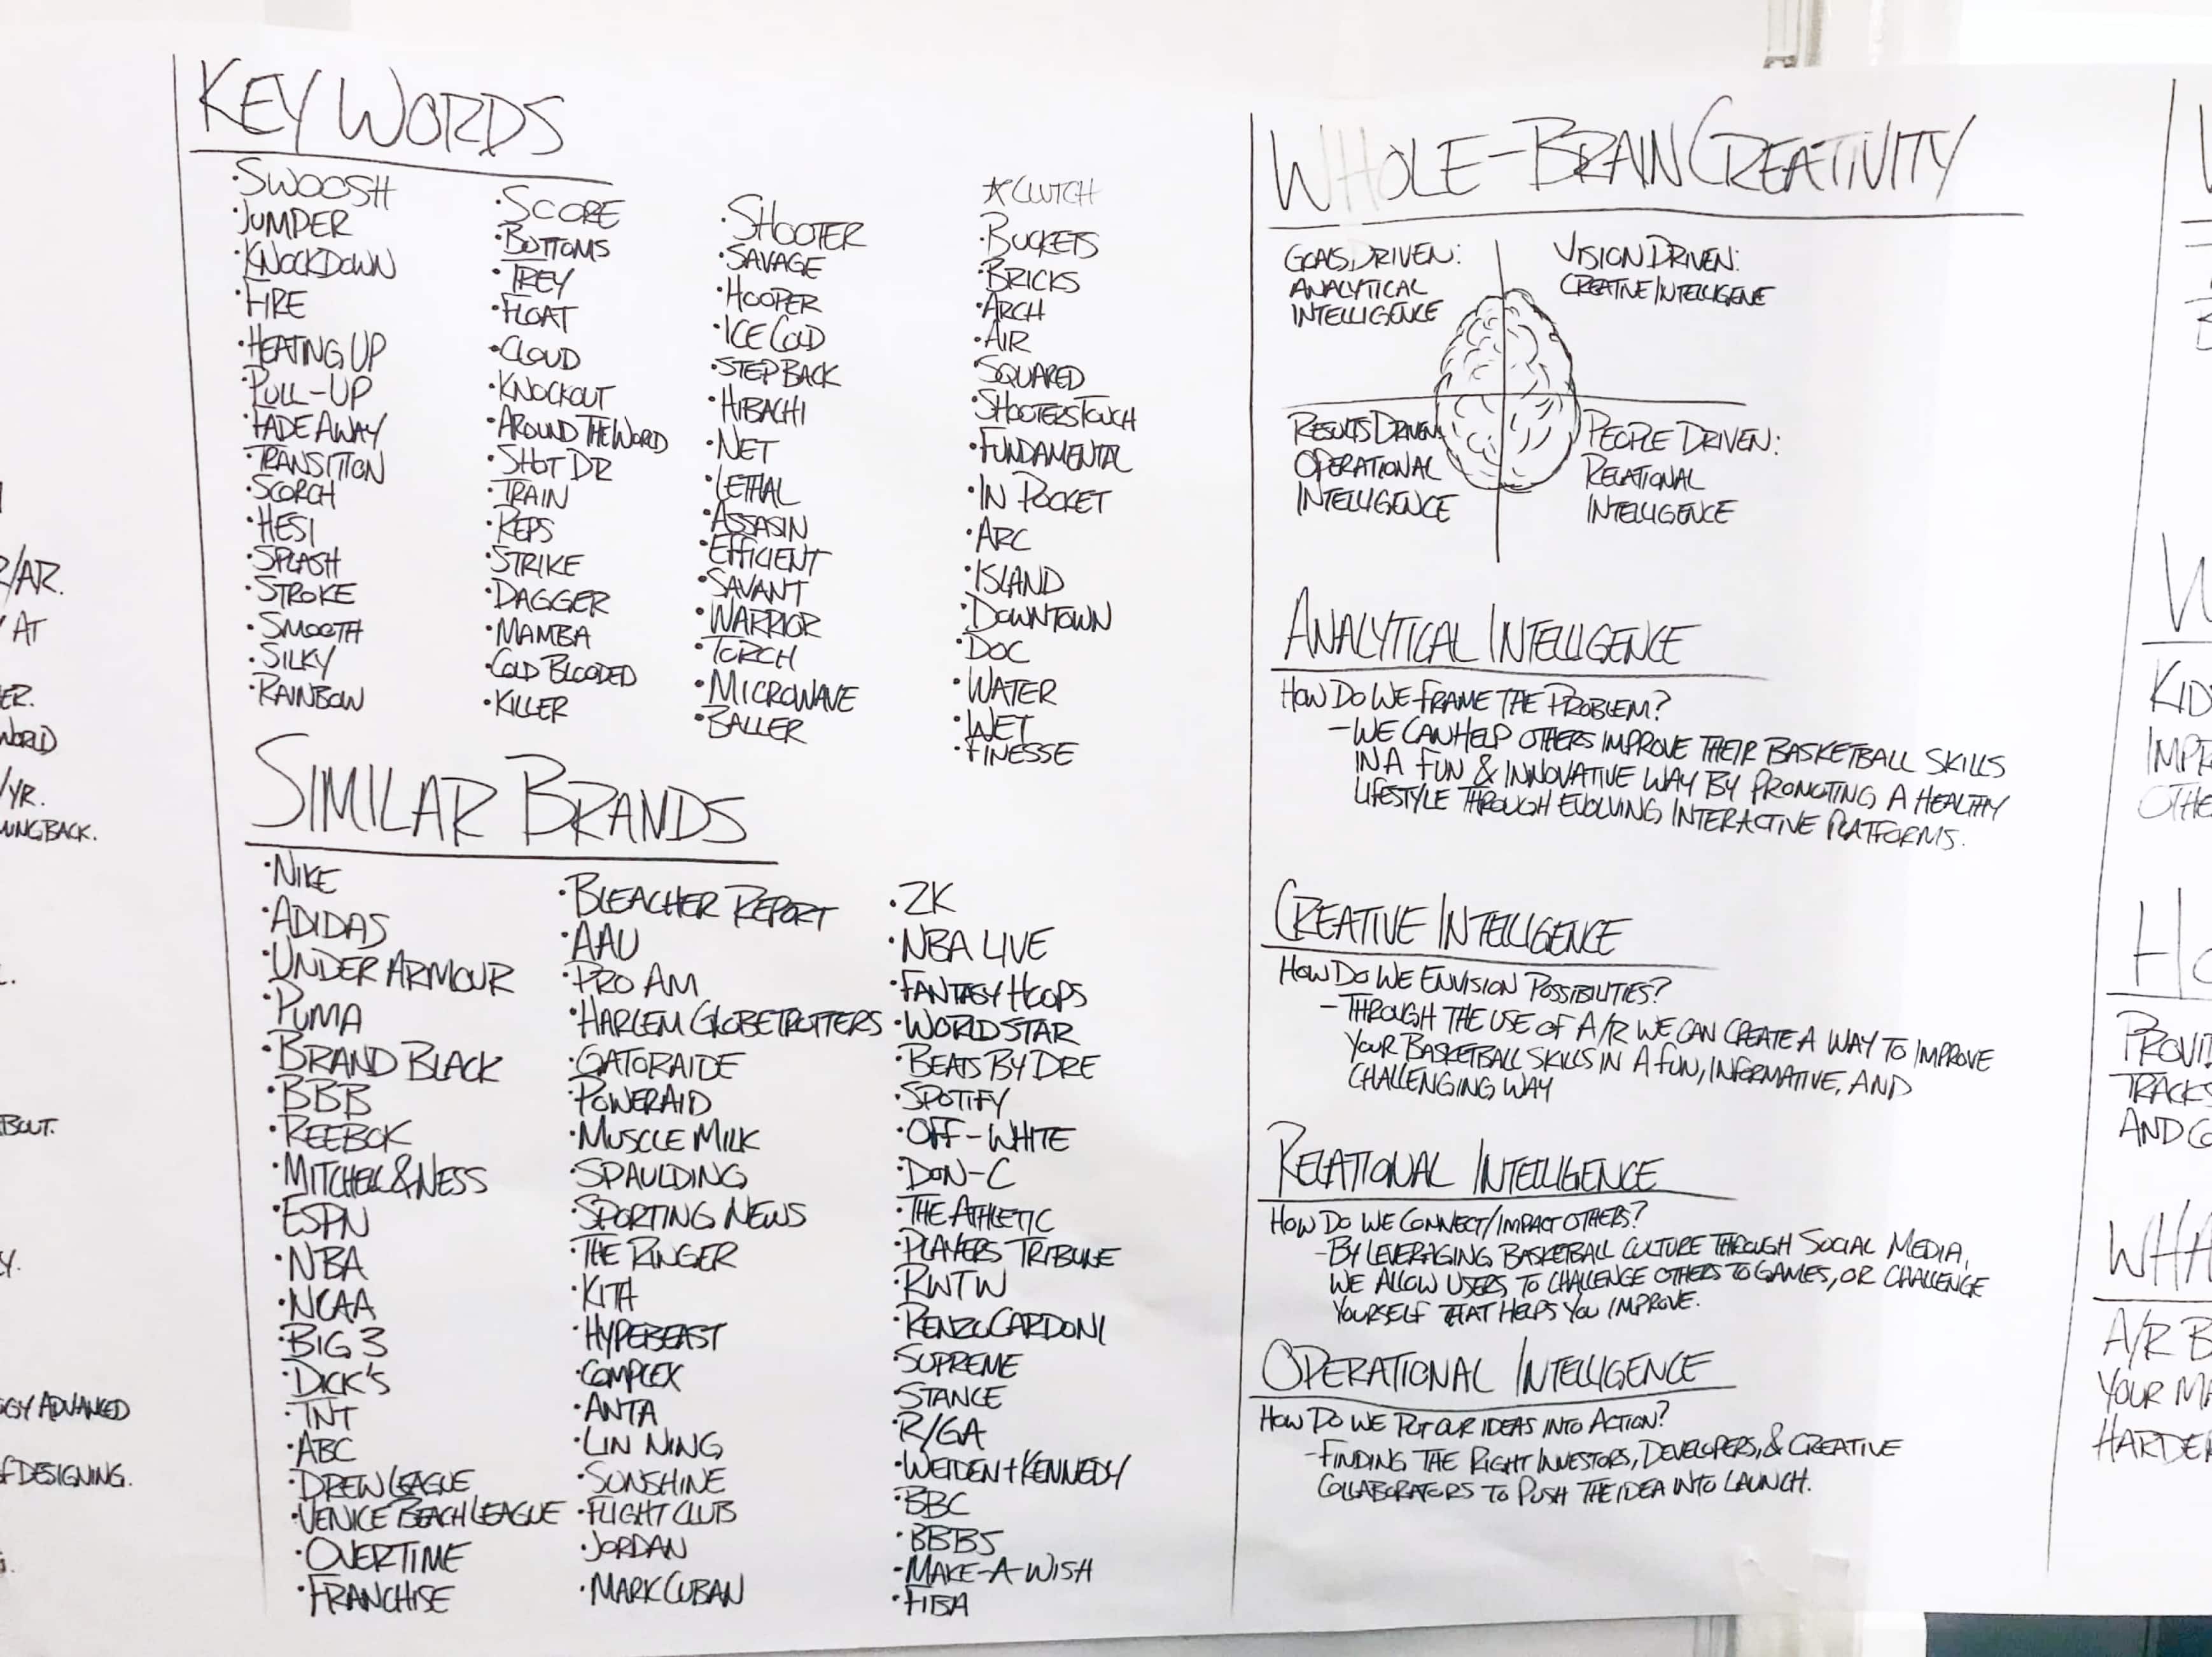 R/AR.
AT
ER.
WORLD
/YR.
BOUT.
Y.
GY ADVANCED
F DESIGNING.
KEY WORDS
·SWOOSH
·JUMPER
·KNOCKDOWN
·FIRE
·HEATING UP
·PULL-UP
·FADE AWAY
·TRANSITION
·SCORCH
·HESI
·SPLASH
·STROKE
·SMOOTH
·SILKY
·RAINBOW
·SCORE
·BOTTOMS
·TREY
·FLOAT
·CLOUD
·KNOCKOUT
·AROUND THE WORLD
·SHOT DR
·TRAIN
·REPS
·STRIKE
·DAGGER
·MAMBA
·COLD BLOODED
·KILLER
·SHOOTER
·SAVAGE
·HOOPER
·ICE COLD
·STEP BACK
·HIBACHI
·NET
·LETHAL
·ASSASIN
·EFFICIENT
·SAVANT
·WARRIOR
·TORCH
·MICROWAVE
·BALLER
☆CLUTCH
·BUCKETS
·BRICKS
·ARCH
·AIR
·SQUARED
·SHOOTERS TOUCH
·FUNDAMENTAL
·IN POCKET
·ARC
·ISLAND
·DOWNTOWN
·DOC
·WATER
·WET
·FINESSE
SIMILAR BRANDS
·NIKE
·ADIDAS
·UNDER ARMOUR
·PUMA
·BRAND BLACK
·BBB
·REEBOK
·MITCHELL&NESS
·ESPN
·NBA
·NCAA
·BIG 3
·DICK'S
·TNT
·ABC
·DREW LEAGUE
·VENICE BEACH LEAGUE
·OVERTIME
·FRANCHISE
·BLEACHER REPORT
·AAU
·PRO AM
·HARLEM GLOBETROTTERS
·GATORAIDE
·POWERAID
·MUSCLE MILK
·SPAULDING
·SPORTING NEWS
·THE RINGER
·KITH
·HYPEBEAST
·COMPLEX
·ANTA
·LIN NING
·SONSHINE
·FLIGHT CLUB
·JORDAN
·MARK CUBAN
·2K
·NBA LIVE
·FANTASY HOOPS
·WORLD STAR
·BEATS BY DRE
·SPOTIFY
·OFF-WHITE
·DON-C
·THE ATHLETIC
·PLAYERS TRIBUNE
·RWTW
·RENZO CARDONI
·SUPREME
·STANCE
·R/GA
·WEIDEN+KENNEDY
·BBC
·BBBS
·MAKE-A-WISH
·FIBA
WHOLE-BRAIN CREATIVITY
GOALS DRIVEN:
ANALYTICAL
INTELLIGENCE
VISION DRIVEN:
CREATIVE INTELLIGENE
RESULTS DRIVEN
OPERATIONAL
INTELLIGENCE
PEOPLE DRIVEN:
RELATIONAL
INTELLIGENCE
ANALYTICAL INTELLIGENCE
HOW DO WE FRAME THE PROBLEM?
-WE CAN HELP OTHERS IMPROVE THEIR BASKETBALL SKILLS
IN A FUN & INNOVATIVE WAY BY PROMOTING A HEALTHY
LIFESTYLE THROUGH EVOLVING INTERACTIVE PLATFORMS.
CREATIVE INTELLIGENCE
HOW DO WE ENVISION POSSIBILITIES?
-THROUGH THE USE OF A/R WE CAN CREATE A WAY TO IMPROVE
YOUR BASKETBALL SKILLS IN A FUN, INFORMATIVE, AND
CHALLENGING WAY
RELATIONAL INTELLIGENCE
HOW DO WE CONNECT/IMPACT OTHERS?
-BY LEVERAGING BASKETBALL CULTURE THROUGH SOCIAL MEDIA,
WE ALLOW USERS TO CHALLENGE OTHERS TO GAMES, OR CHALLENGE
YOURSELF THAT HELPS YOU IMPROVE.
OPERATIONAL INTELLIGENCE
HOW DO WE PUT OUR IDEAS INTO ACTION?
-FINDING THE RIGHT INVESTORS, DEVELOPERS, & CREATIVE
COLLABORATORS TO PUSH THE IDEA INTO LAUNCH.
KID
IMPR
OTHE
PROVI
TRACKS
AND CO
WHA
A/R B
YOUR MA
HARDER